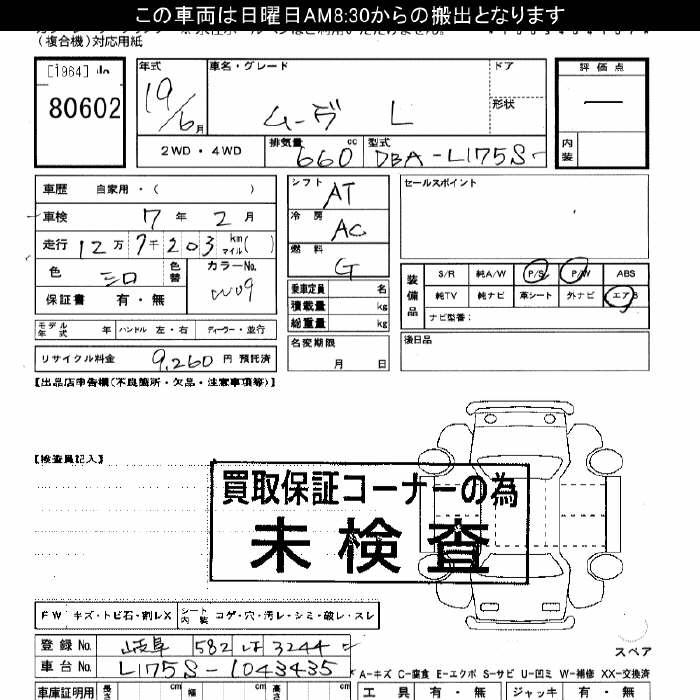 この車両は日曜日AM8:30からの搬出となります
(複合機)対応用紙
[1964]
80602
年式 19/6月
車名・グレード ムーヴ L
ドア
形状
評価点 —
内装
2WD・4WD
排気量 660 cc
型式 DBA-L175S
車歴 自家用・( )
車検 7年 2月
走行 12万7千203 km マイル( )
色 シロ 色替
カラーNo. W09
保証書 有・無
シフト AT
冷房 AC
燃料 G
乗車定員 名
積載量 kg
総重量 kg
セールスポイント
装備品
S/R 純A/W P/S P/W ABS
純TV 純ナビ 革シート 外ナビ エアB
ナビ型番:
モデル年式 年 ハンドル 左・右 ディーラー・並行
名変期限 月 日
後日品
リサイクル料金 9,260 円 預託済
【出品店申告欄(不良箇所・欠品・注意事項等)】
【検査員記入】
買取保証コーナーの為
未検査
FW キズ・トビ石・割レX
シート内装 コゲ・穴・汚レ・シミ・破レ・スレ
登録No. 岐阜 582 は 3244
スペア
車台No. L175S-1043435
A-キズ C-腐食 E-エクボ S-サビ U-凹ミ W-補修 XX-交換済
車庫証明用 長さ cm 幅 cm 高さ cm
工具 有・無 ジャッキ 有・無